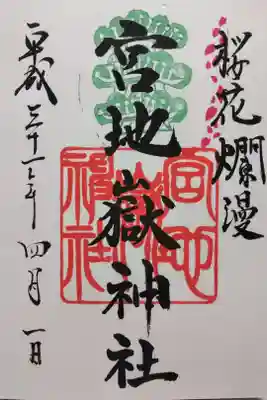 桜花爛漫
宮地嶽神社
平成三十一年 四月 一日
宮地嶽神社